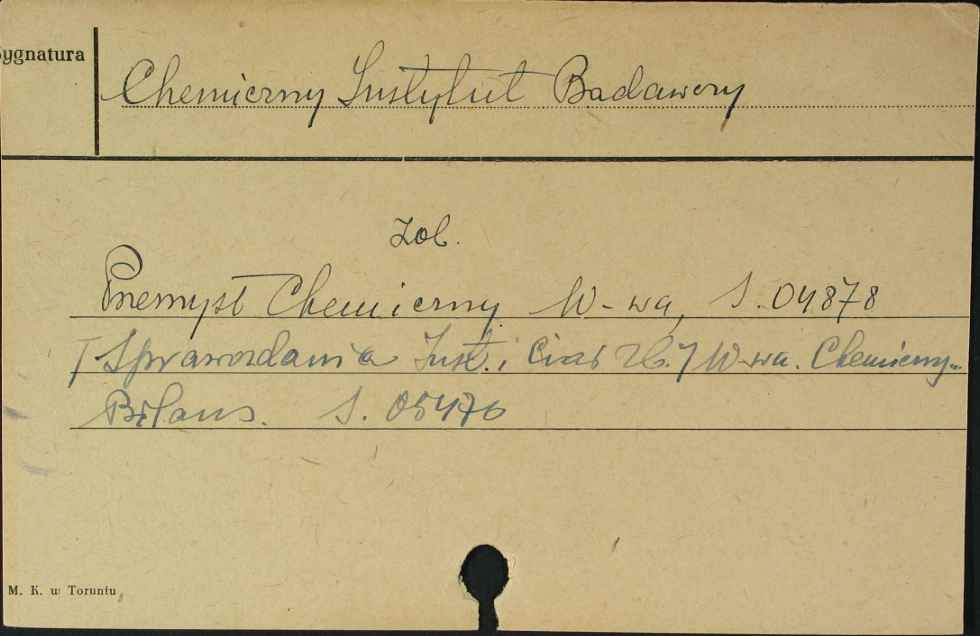 Sygnatura
Chemiczny Instytut Badawczy
Zob.
Przemysł Chemiczny W-wa, S. 04878
[Sprawozdania Inst. i Ciał Zb.] W-wa. Chemiczny-
Bilans. S. 05476
M. K. w Toruniu